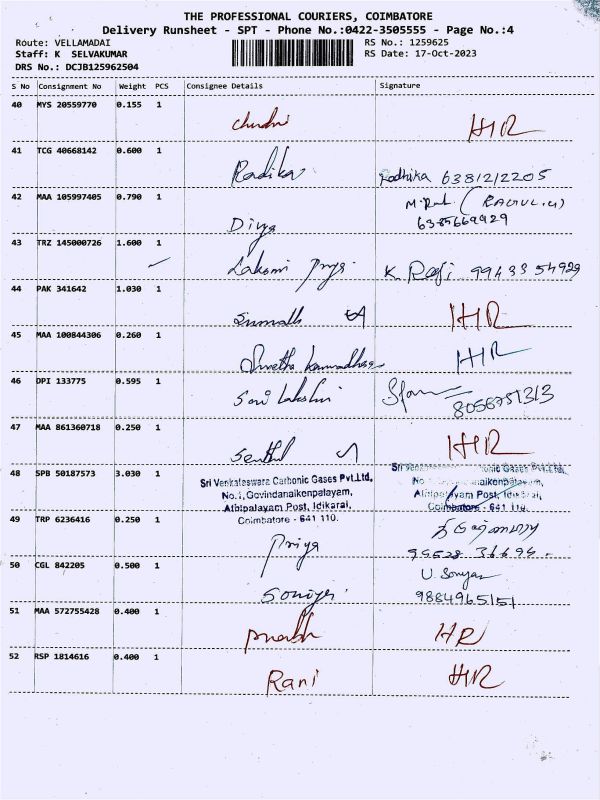 THE PROFESSIONAL COURIERS, COIMBATORE
Delivery Runsheet - SPT - Phone No.:0422-3505555 - Page No.:4
Route: VELLAMADAI
RS No.: 1259625
Staff: K SELVAKUMAR
RS Date: 17-Oct-2023
DRS No.: DCJB125962504
S No Consignment No Weight PCS Consignee Details Signature
40 MYS 20559770 0.155 1 HR
41 TCG 40668142 0.600 1 Radika Radhika 6381212205
42 MAA 105997405 0.790 1 Divya
43 TRZ 145000726 1.600 1 Laksmi Priya K. Raji 99433 54929
44 PAK 341642 1.030 1 HR
45 MAA 100844306 0.260 1 Swetha HR
46 DPI 133775 0.595 1 8056751313
47 MAA 861360718 0.250 1 Senthil HR
48 SPB 50187573 3.030 1
Sri Venkateswara Carbonic Gases Pvt.Ltd,
No.1, Govindanaikenpalayam,
Athipalayam Post, Idikarai,
Coimbatore - 641 110.
Sri Gases Pvt.Ltd,
No
Athipalayam Post, Idikarai,
Coimbatore - 641 110.
49 TRP 6236416 0.250 1 Priya
50 CGL 842205 0.500 1 Soniya 9884965151
51 MAA 572755428 0.400 1 HR
52 RSP 1814616 0.400 1 Rani HR